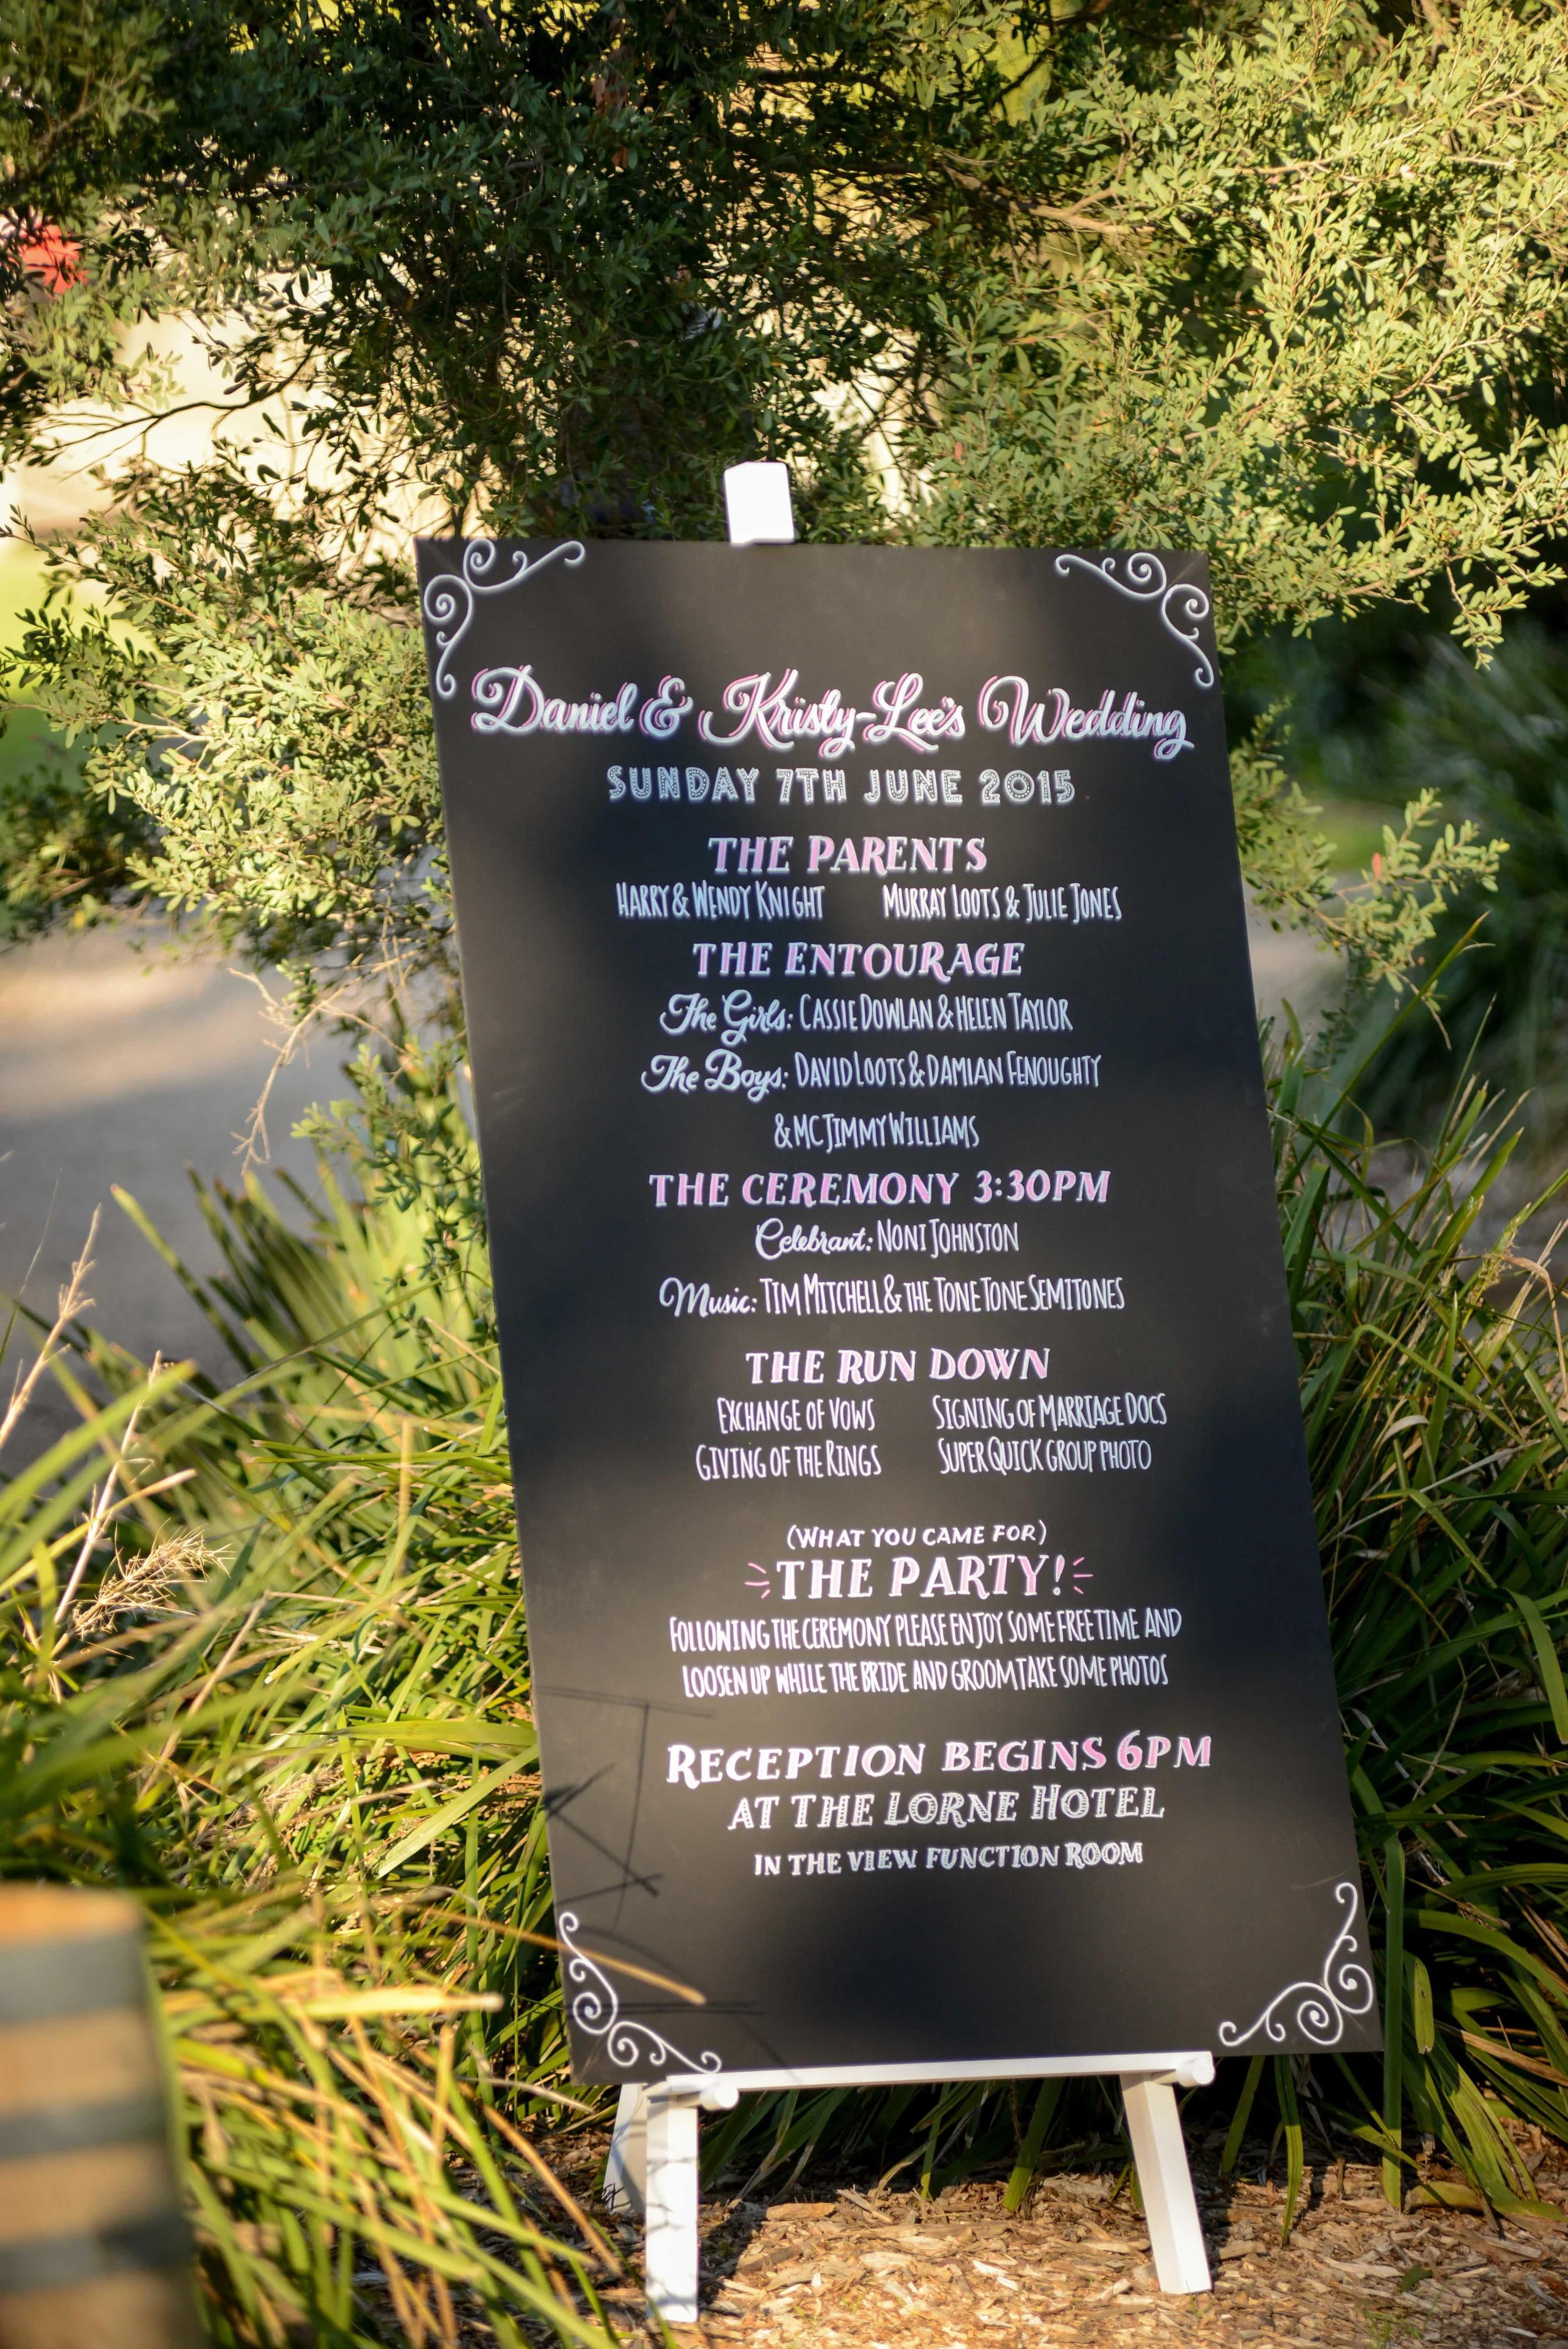 Daniel & Kristy-Lee's Wedding
SUNDAY 7TH JUNE 2015
THE PARENTS
HARRY & WENDY KNIGHT MURRAY LOOTS & JULIE JONES
THE ENTOURAGE
The Girls: CASSIE DOWLAN & HELEN TAYLOR
The Boys: DAVID LOOTS & DAMIAN FENOUGHTY
& MC JIMMY WILLIAMS
THE CEREMONY 3:30PM
Celebrant: NONI JOHNSTON
Music: TIM MITCHELL & THE TONE TONE SEMITONES
THE RUN DOWN
EXCHANGE OF VOWS SIGNING OF MARRIAGE DOCS
GIVING OF THE RINGS SUPER QUICK GROUP PHOTO
(WHAT YOU CAME FOR)
THE PARTY!
FOLLOWING THE CEREMONY PLEASE ENJOY SOME FREE TIME AND
LOOSEN UP WHILE THE BRIDE AND GROOM TAKE SOME PHOTOS
RECEPTION BEGINS 6PM
AT THE LORNE HOTEL
IN THE VIEW FUNCTION ROOM